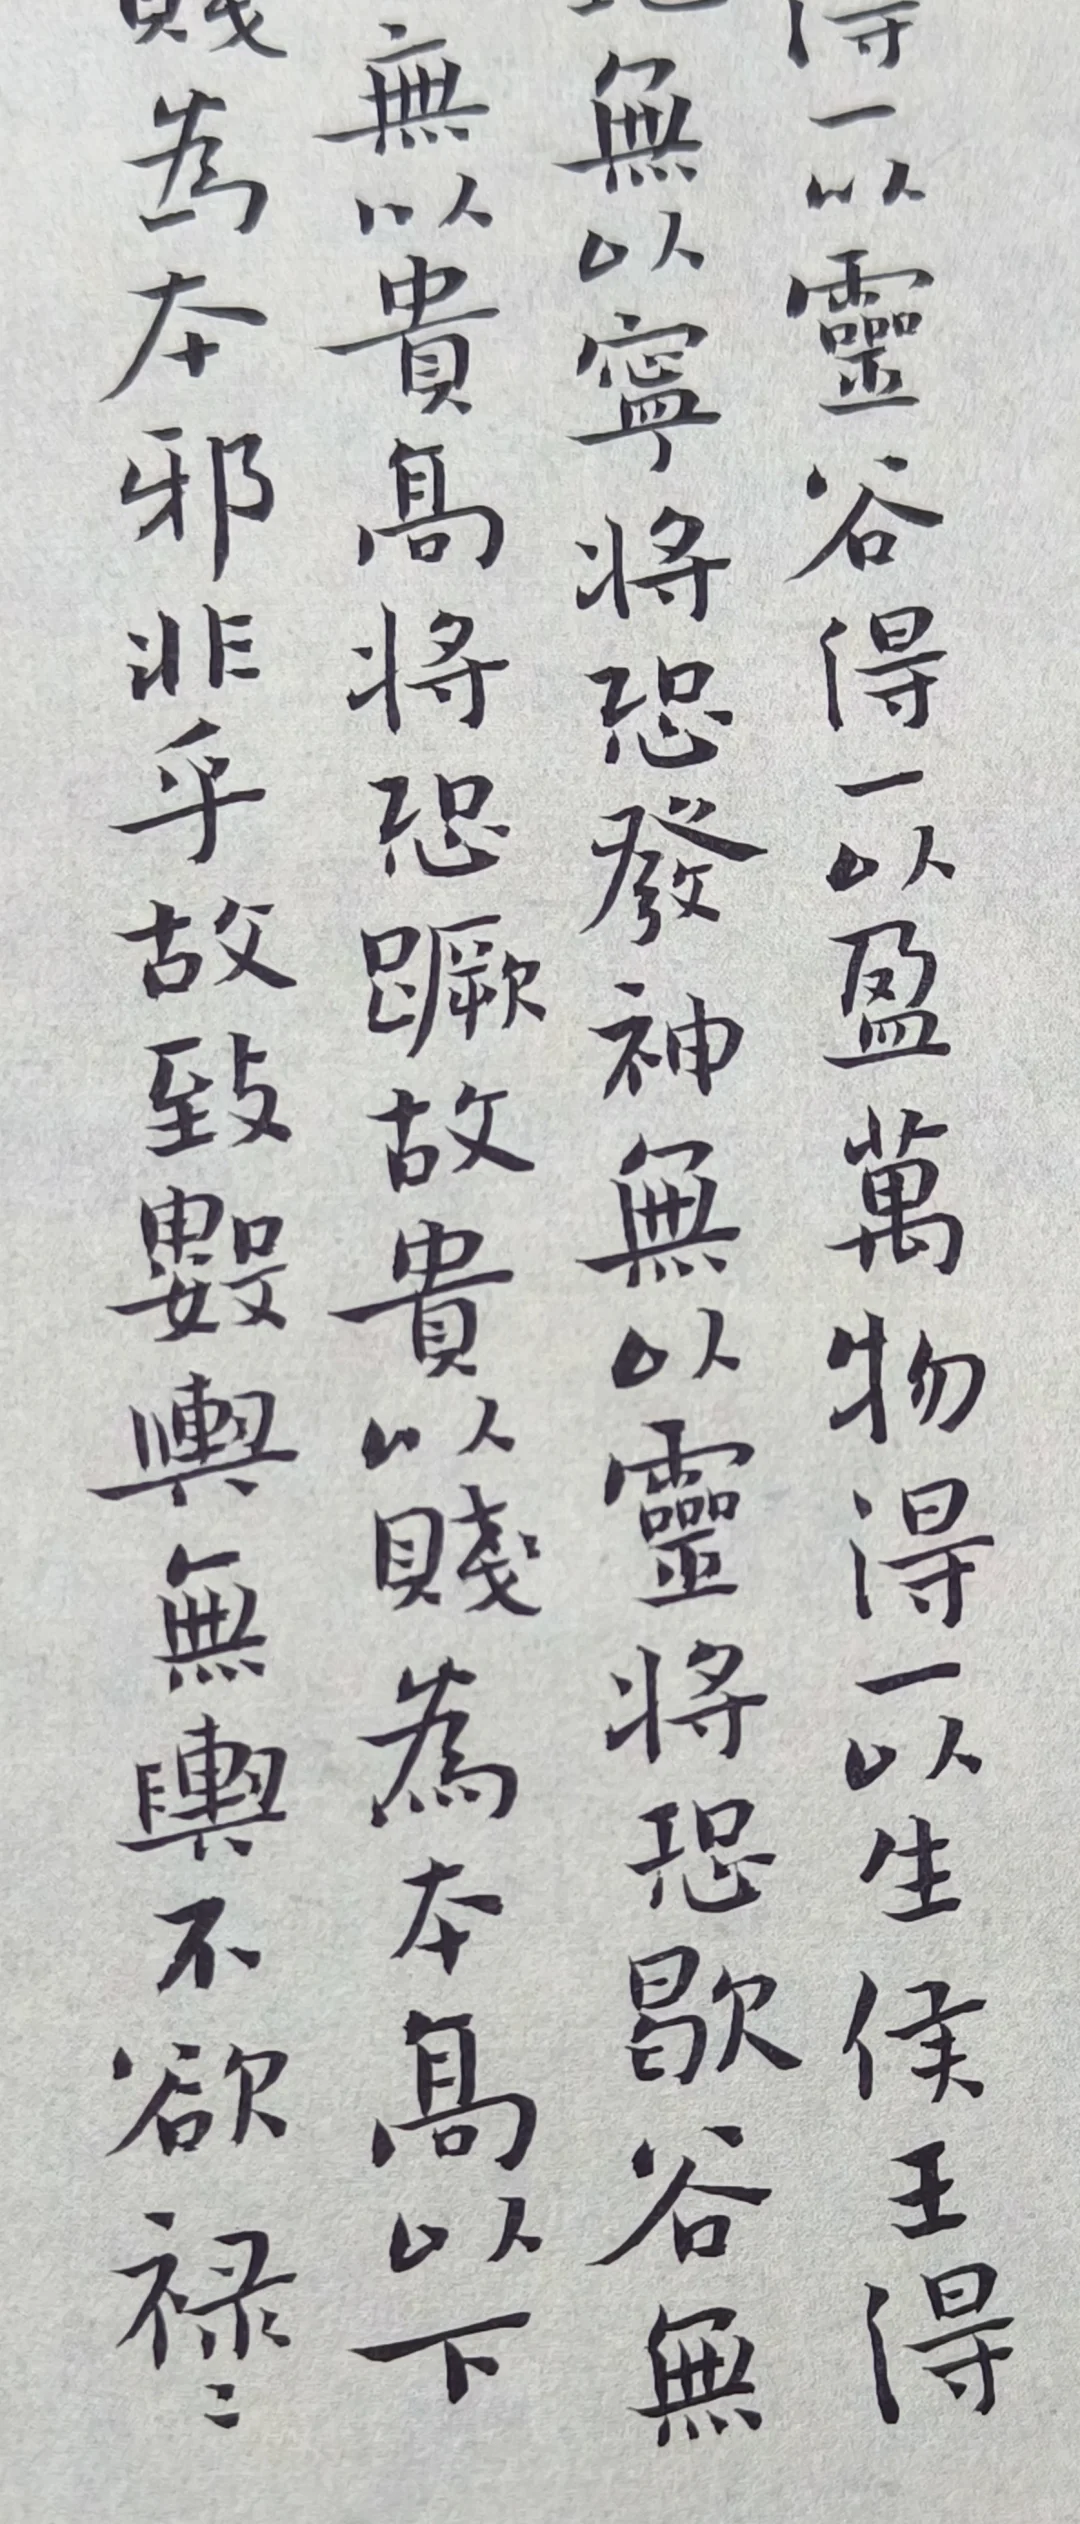 得一以靈谷得一以盈萬物得一以生侯王得
地無以寧將恐發神無以靈將恐歇谷無
無以貴高將恐蹶故貴以賤為本高以下
賤為本邪非乎故致數輿無輿不欲祿〻